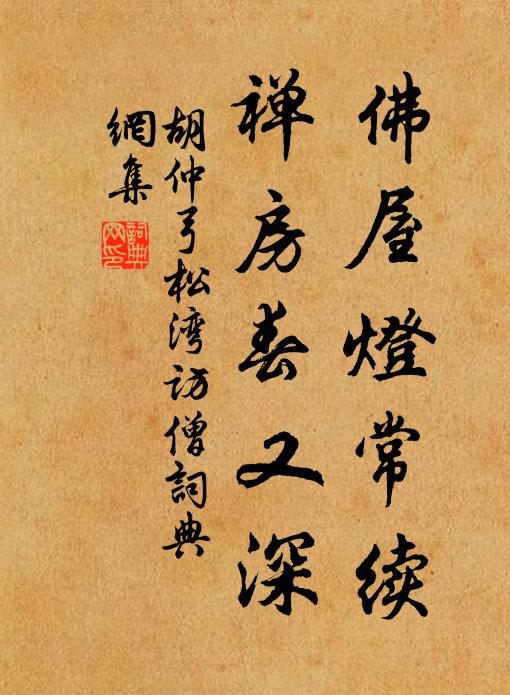 佛屋燈常续
禅房春又深
胡仲弓松湾访僧詞典
網集
詞典網印